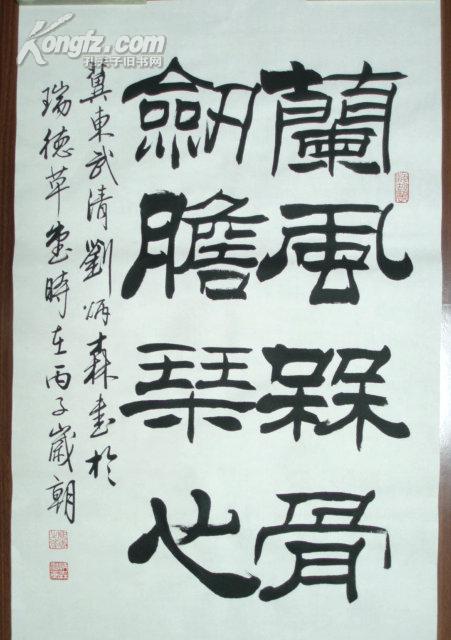 蘭風槑骨
劒膽琹心
冀東武清劉炳森書於
瑞德草堂時在丙子歲朝
Kongfz.com
孔夫子旧书网